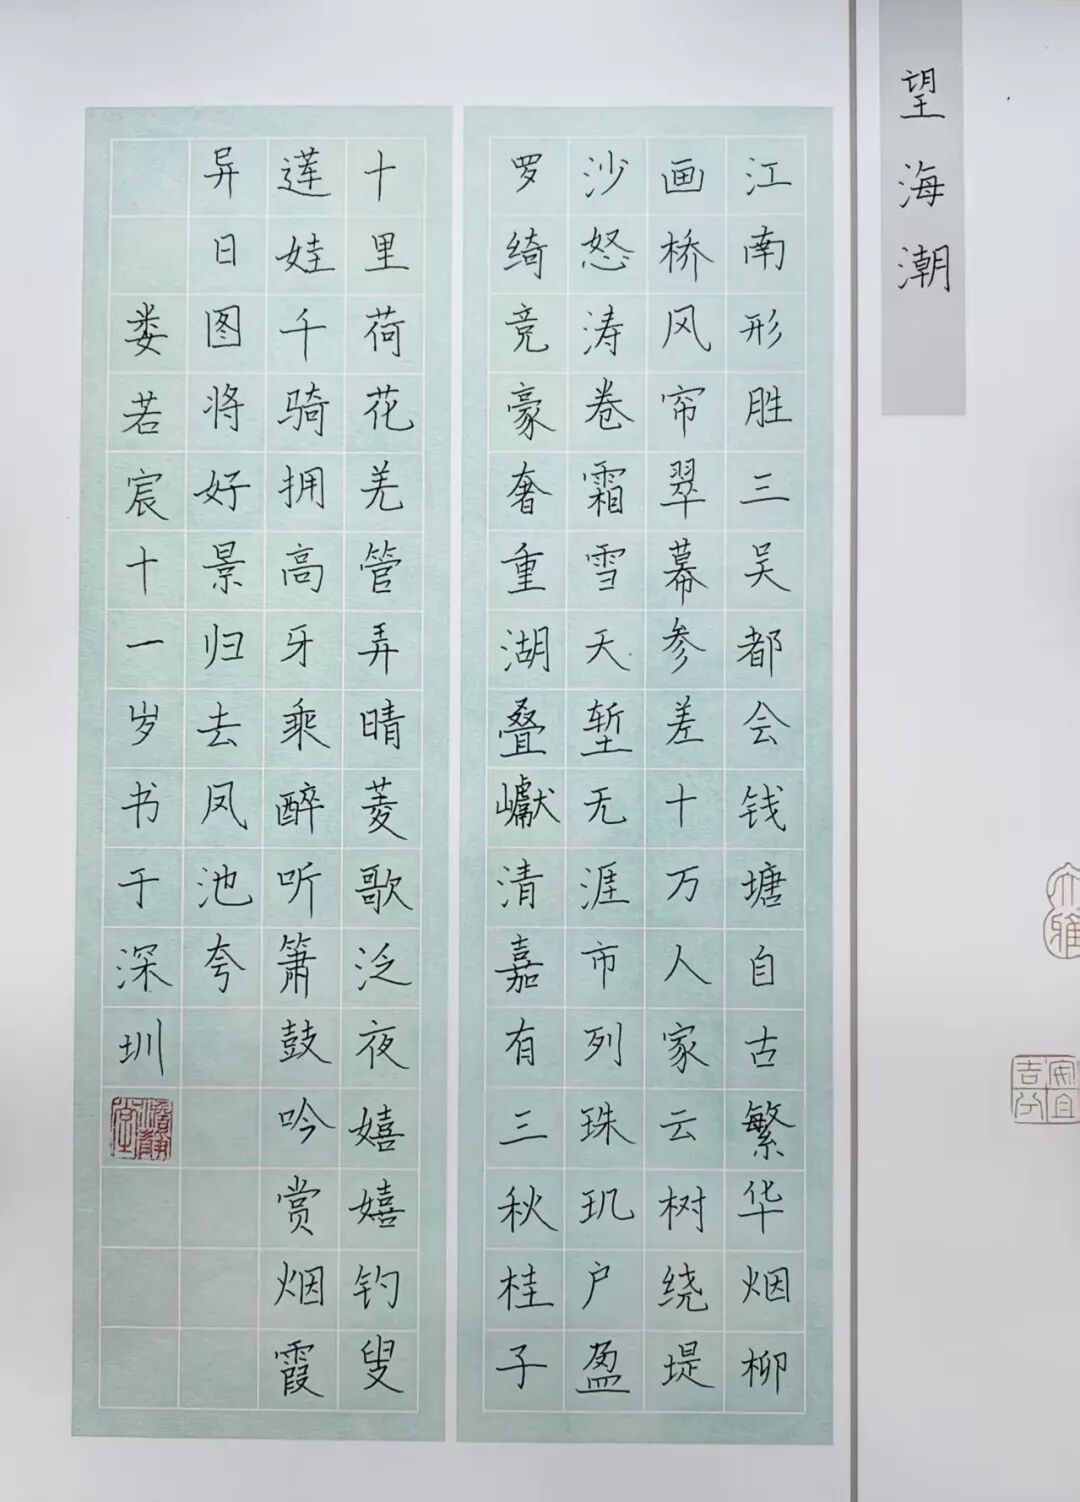 望海潮
江南形胜三吴都会钱塘自古繁华烟柳
画桥风帘翠幕参差十万人家云树绕堤
沙怒涛卷霜雪天堑无涯市列珠玑户盈
罗绮竞豪奢重湖叠巘清嘉有三秋桂子
十里荷花羌管弄晴菱歌泛夜嬉嬉钓叟
莲娃千骑拥高牙乘醉听箫鼓吟赏烟霞
异日图将好景归去凤池夸
娄若宸十一岁书于深圳
大雅